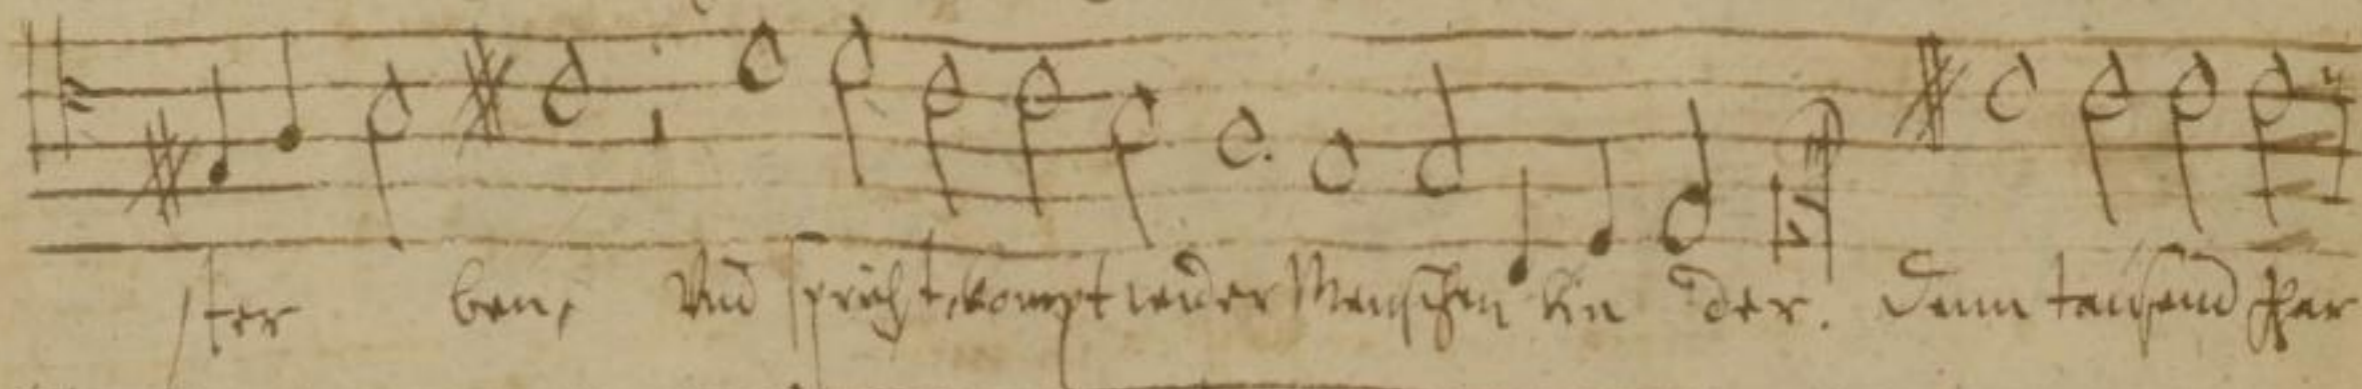 ster ben, Und spricht, kompt wider Menschen kin der. Denn tausend Jar